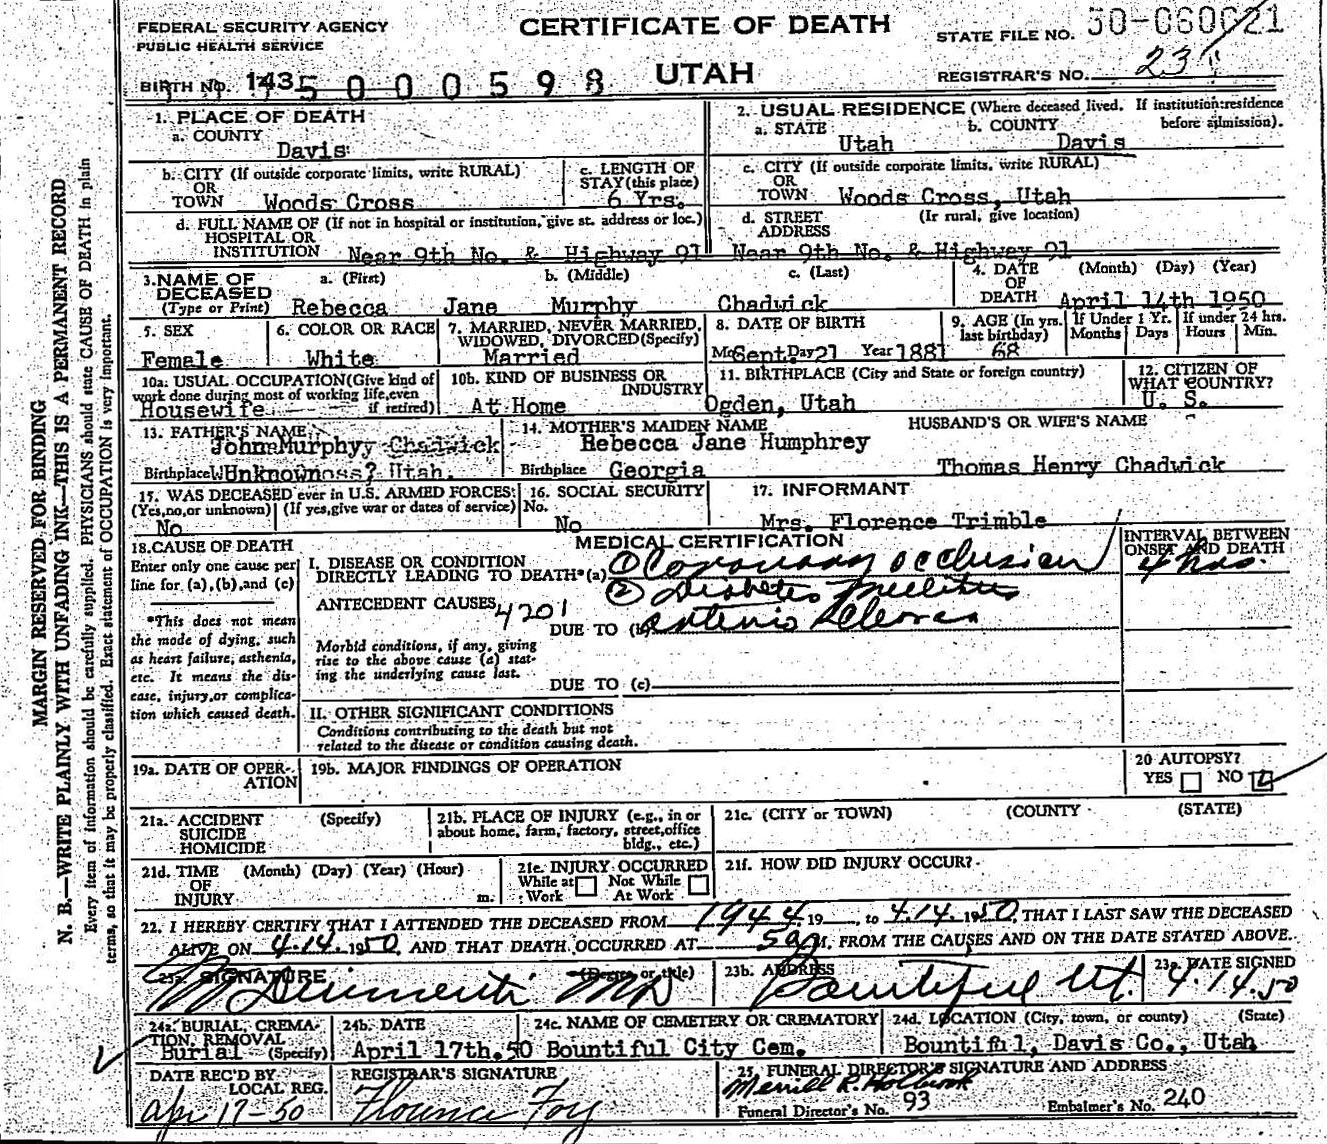 FEDERAL SECURITY AGENCY
PUBLIC HEALTH SERVICE
CERTIFICATE OF DEATH
STATE FILE NO. 50-060021
BIRTH NO. 143 5 0 0 0 5 9 8
UTAH
REGISTRAR'S NO. 23
1. PLACE OF DEATH
a. COUNTY
Davis
2. USUAL RESIDENCE (Where deceased lived. If institution: residence before admission).
a. STATE Utah b. COUNTY Davis
b. CITY (If outside corporate limits, write RURAL)
OR
TOWN Woods Cross
c. LENGTH OF STAY (this place)
6 Yrs.
c. CITY (If outside corporate limits, write RURAL)
OR
TOWN Woods Cross, Utah
d. FULL NAME OF (If not in hospital or institution, give st. address or loc.)
HOSPITAL OR
INSTITUTION Near 9th No. & Highway 91
d. STREET ADDRESS (Ir rural, give location)
Near 9th No. & Highway 91
3. NAME OF DECEASED
(Type or Print)
a. (First) b. (Middle) c. (Last)
Rebecca Jane Murphy Chadwick
4. DATE OF DEATH (Month) (Day) (Year)
April 14th 1950
5. SEX
Female
6. COLOR OR RACE
White
7. MARRIED, NEVER MARRIED, WIDOWED, DIVORCED (Specify)
Married
8. DATE OF BIRTH
Sept. Day 21 Year 1881
9. AGE (In yrs. last birthday)
68
If Under 1 Yr. Months Days
If under 24 hrs. Hours Min.
10a. USUAL OCCUPATION (Give kind of work done during most of working life, even if retired)
Housewife
10b. KIND OF BUSINESS OR INDUSTRY
At Home
11. BIRTHPLACE (City and State or foreign country)
Ogden, Utah
12. CITIZEN OF WHAT COUNTRY?
U. S.
13. FATHER'S NAME
John Murphy Chadwick
Birthplace Unknown Utah.
14. MOTHER'S MAIDEN NAME
Rebecca Jane Humphrey
Birthplace Georgia
HUSBAND'S OR WIFE'S NAME
Thomas Henry Chadwick
15. WAS DECEASED ever in U.S. ARMED FORCES?
(Yes, no, or unknown) (If yes, give war or dates of service)
No
16. SOCIAL SECURITY No.
No
17. INFORMANT
Mrs. Florence Trimble
18. CAUSE OF DEATH
Enter only one cause per line for (a), (b), and (c)
*This does not mean the mode of dying, such as heart failure, asthenia, etc. It means the disease, injury, or complication which caused death.
MEDICAL CERTIFICATION
INTERVAL BETWEEN ONSET AND DEATH
I. DISEASE OR CONDITION
DIRECTLY LEADING TO DEATH* (a) ① Coronary occlusion 4 hrs.
② Diabetes mellitus
ANTECEDENT CAUSES 4201
DUE TO (b)
Morbid conditions, if any, giving rise to the above cause (a) stating the underlying cause last.
DUE TO (c)
II. OTHER SIGNIFICANT CONDITIONS
Conditions contributing to the death but not related to the disease or condition causing death.
19a. DATE OF OPERATION
19b. MAJOR FINDINGS OF OPERATION
20 AUTOPSY?
YES NO
21a. ACCIDENT SUICIDE HOMICIDE (Specify)
21b. PLACE OF INJURY (e.g., in or about home, farm, factory, street, office bldg., etc.)
21c. (CITY or TOWN) (COUNTY) (STATE)
21d. TIME OF INJURY (Month) (Day) (Year) (Hour) m.
21e. INJURY OCCURRED
While at Work Not While At Work
21f. HOW DID INJURY OCCUR?
22. I HEREBY CERTIFY THAT I ATTENDED THE DECEASED FROM 1944 19 , to 4.14. 1950, THAT I LAST SAW THE DECEASED
ALIVE ON 4.14. 1950 AND THAT DEATH OCCURRED AT 5 a M. FROM THE CAUSES AND ON THE DATE STATED ABOVE.
23a. SIGNATURE (Degree or title)
MD
23b. ADDRESS
Bountiful Ut.
23c. DATE SIGNED
4.14.50
24a. BURIAL, CREMATION, REMOVAL (Specify)
Burial
24b. DATE
April 17th. 50
24c. NAME OF CEMETERY OR CREMATORY
Bountiful City Cem.
24d. LOCATION (City, town, or county) (State)
Bountiful, Davis Co., Utah
DATE REC'D BY LOCAL REG.
Apr 17-50
REGISTRAR'S SIGNATURE
Florence Foy
25. FUNERAL DIRECTOR'S SIGNATURE AND ADDRESS
Merrill R. Holbrook
Funeral Director's No. 93 Embalmer's No. 240
MARGIN RESERVED FOR BINDING
N. B.—WRITE PLAINLY WITH UNFADING INK—THIS IS A PERMANENT RECORD
Every item of information should be carefully supplied. PHYSICIANS should state CAUSE OF DEATH in plain
terms, so that it may be properly classified. Exact statement of OCCUPATION is very important.